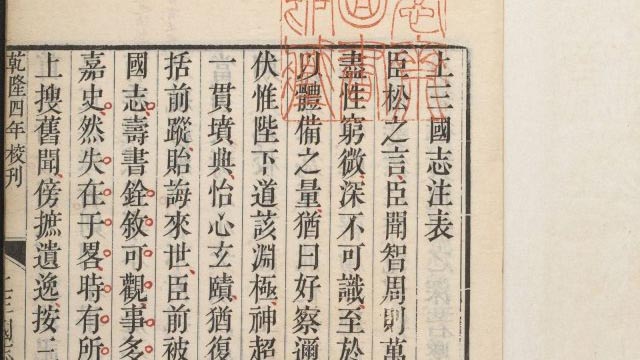 上三國志注表
臣松之言臣聞智周則萬
盡性窮微深不可識至於
以體備之量猶曰好察邇
伏惟陛下道該淵極神超
一貫墳典怡心玄賾猶復
括前蹤貽誨來世臣前被
國志壽書銓敘可觀事多
嘉史然失在于畧時有所
上搜舊聞傍摭遺逸按三
乾隆四年校刊